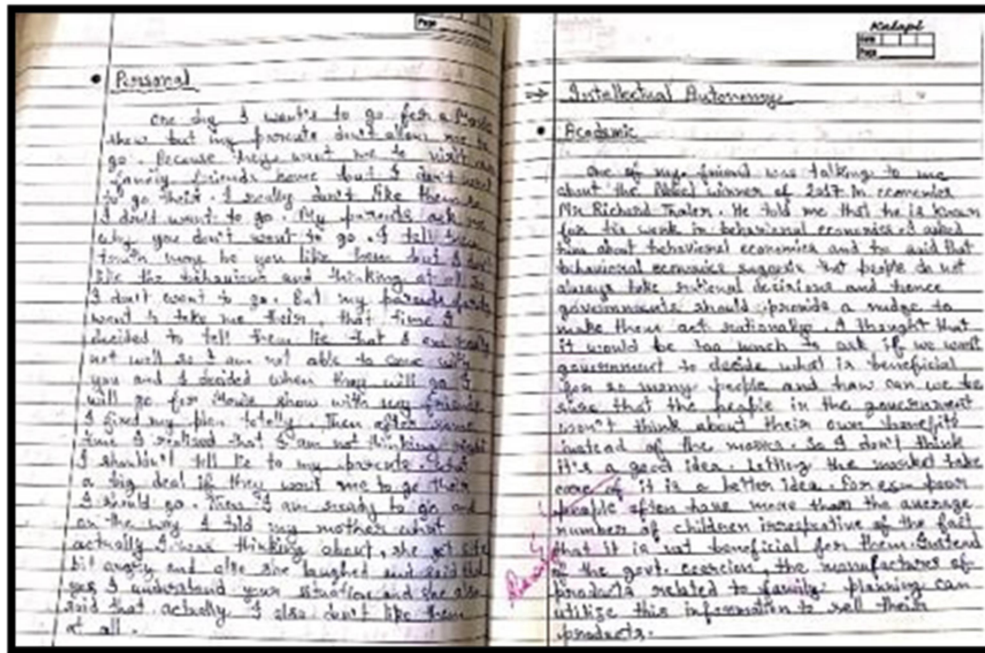 Page
• Personal
One day I want's to go for a Movie
show but my parents don't allow me to
go. Because they want me to visit our
family friends home but I don't want
to go their. I really don't like them so
I don't want to go. My parents ask me
why you don't want to go. I tell them
truth may be you like them but I don't
like the behaviour and thinking at all so
I don't want to go. But my parents
want to take me their, that time I
decided to tell them lie that I am
not well so I am not able to come with
you and I decided when they will go I
will go for Movie show with my friends
I fixed my plan totally. Then after some
time I realised that I am not thinking right
I shouldn't tell lie to my parents. what
a big deal if they want me to go their
I should go. Then I am ready to go and
on the way I told my mother what
actually I was thinking about, she get
bit angry and also she laughed and said that
yes I understand your situation and she also
said that actually I also don't like them
at all.
Kalapi
Date
Page
⇒ Intellectual Autonomy
• Academic
One of my friend was talking to me
about the Nobel winner of 2017 in economics
Mr Richard Thaler. He told me that he is known
for his work in behavioral economics. I asked
him about behavioral economics and he said that
behavioral economics suggests that people do not
always take rational decisions and hence
governments should provide a nudge to
make them act rationally. I thought that
it would be too much to ask if we want
government to decide what is beneficial
for so many people and how can we be
sure that the people in the government
won't think about their own benefits
instead of the masses. So I don't think
it's a good idea. Letting the market take
care of it is a better idea. For exm poor
people often have more than the average
number of children irrespective of the fact
that it is not beneficial for them. Instead
of the govt. coercion, the manufactures of
products related to family planning can
utilize this information to sell their
products.